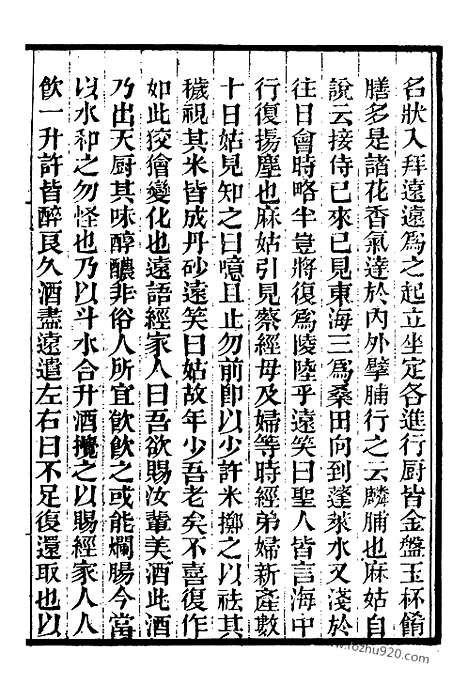 名狀入拜遠遠爲之起立坐定各進行厨皆金盤玉杯餚
膳多是諸花香氣達於内外擘脯行之云麟脯也麻姑自
說云接侍已來已見東海三爲桑田向到蓬萊水又淺於
往日會時略半豈將復爲陵陸乎遠笑曰聖人皆言海中
行復揚塵也麻姑引見蔡經母及婦等時經弟婦新產數
十日姑見知之曰噫且止勿前即以少許米擲之以祛其
穢視其米皆成丹砂遠笑曰姑故年少吾老矣不喜復作
如此狡獪變化也遠語經家人曰吾欲賜汝輩美酒此酒
乃出天厨其味醇醲非俗人所宜飮飮之或能爛腸今當
以水和之勿怪也乃以斗水合升酒攪之以賜經家人人
飮一升許皆醉良久酒盡遠遣左右曰不足復還取也以
www.fozhu920.com